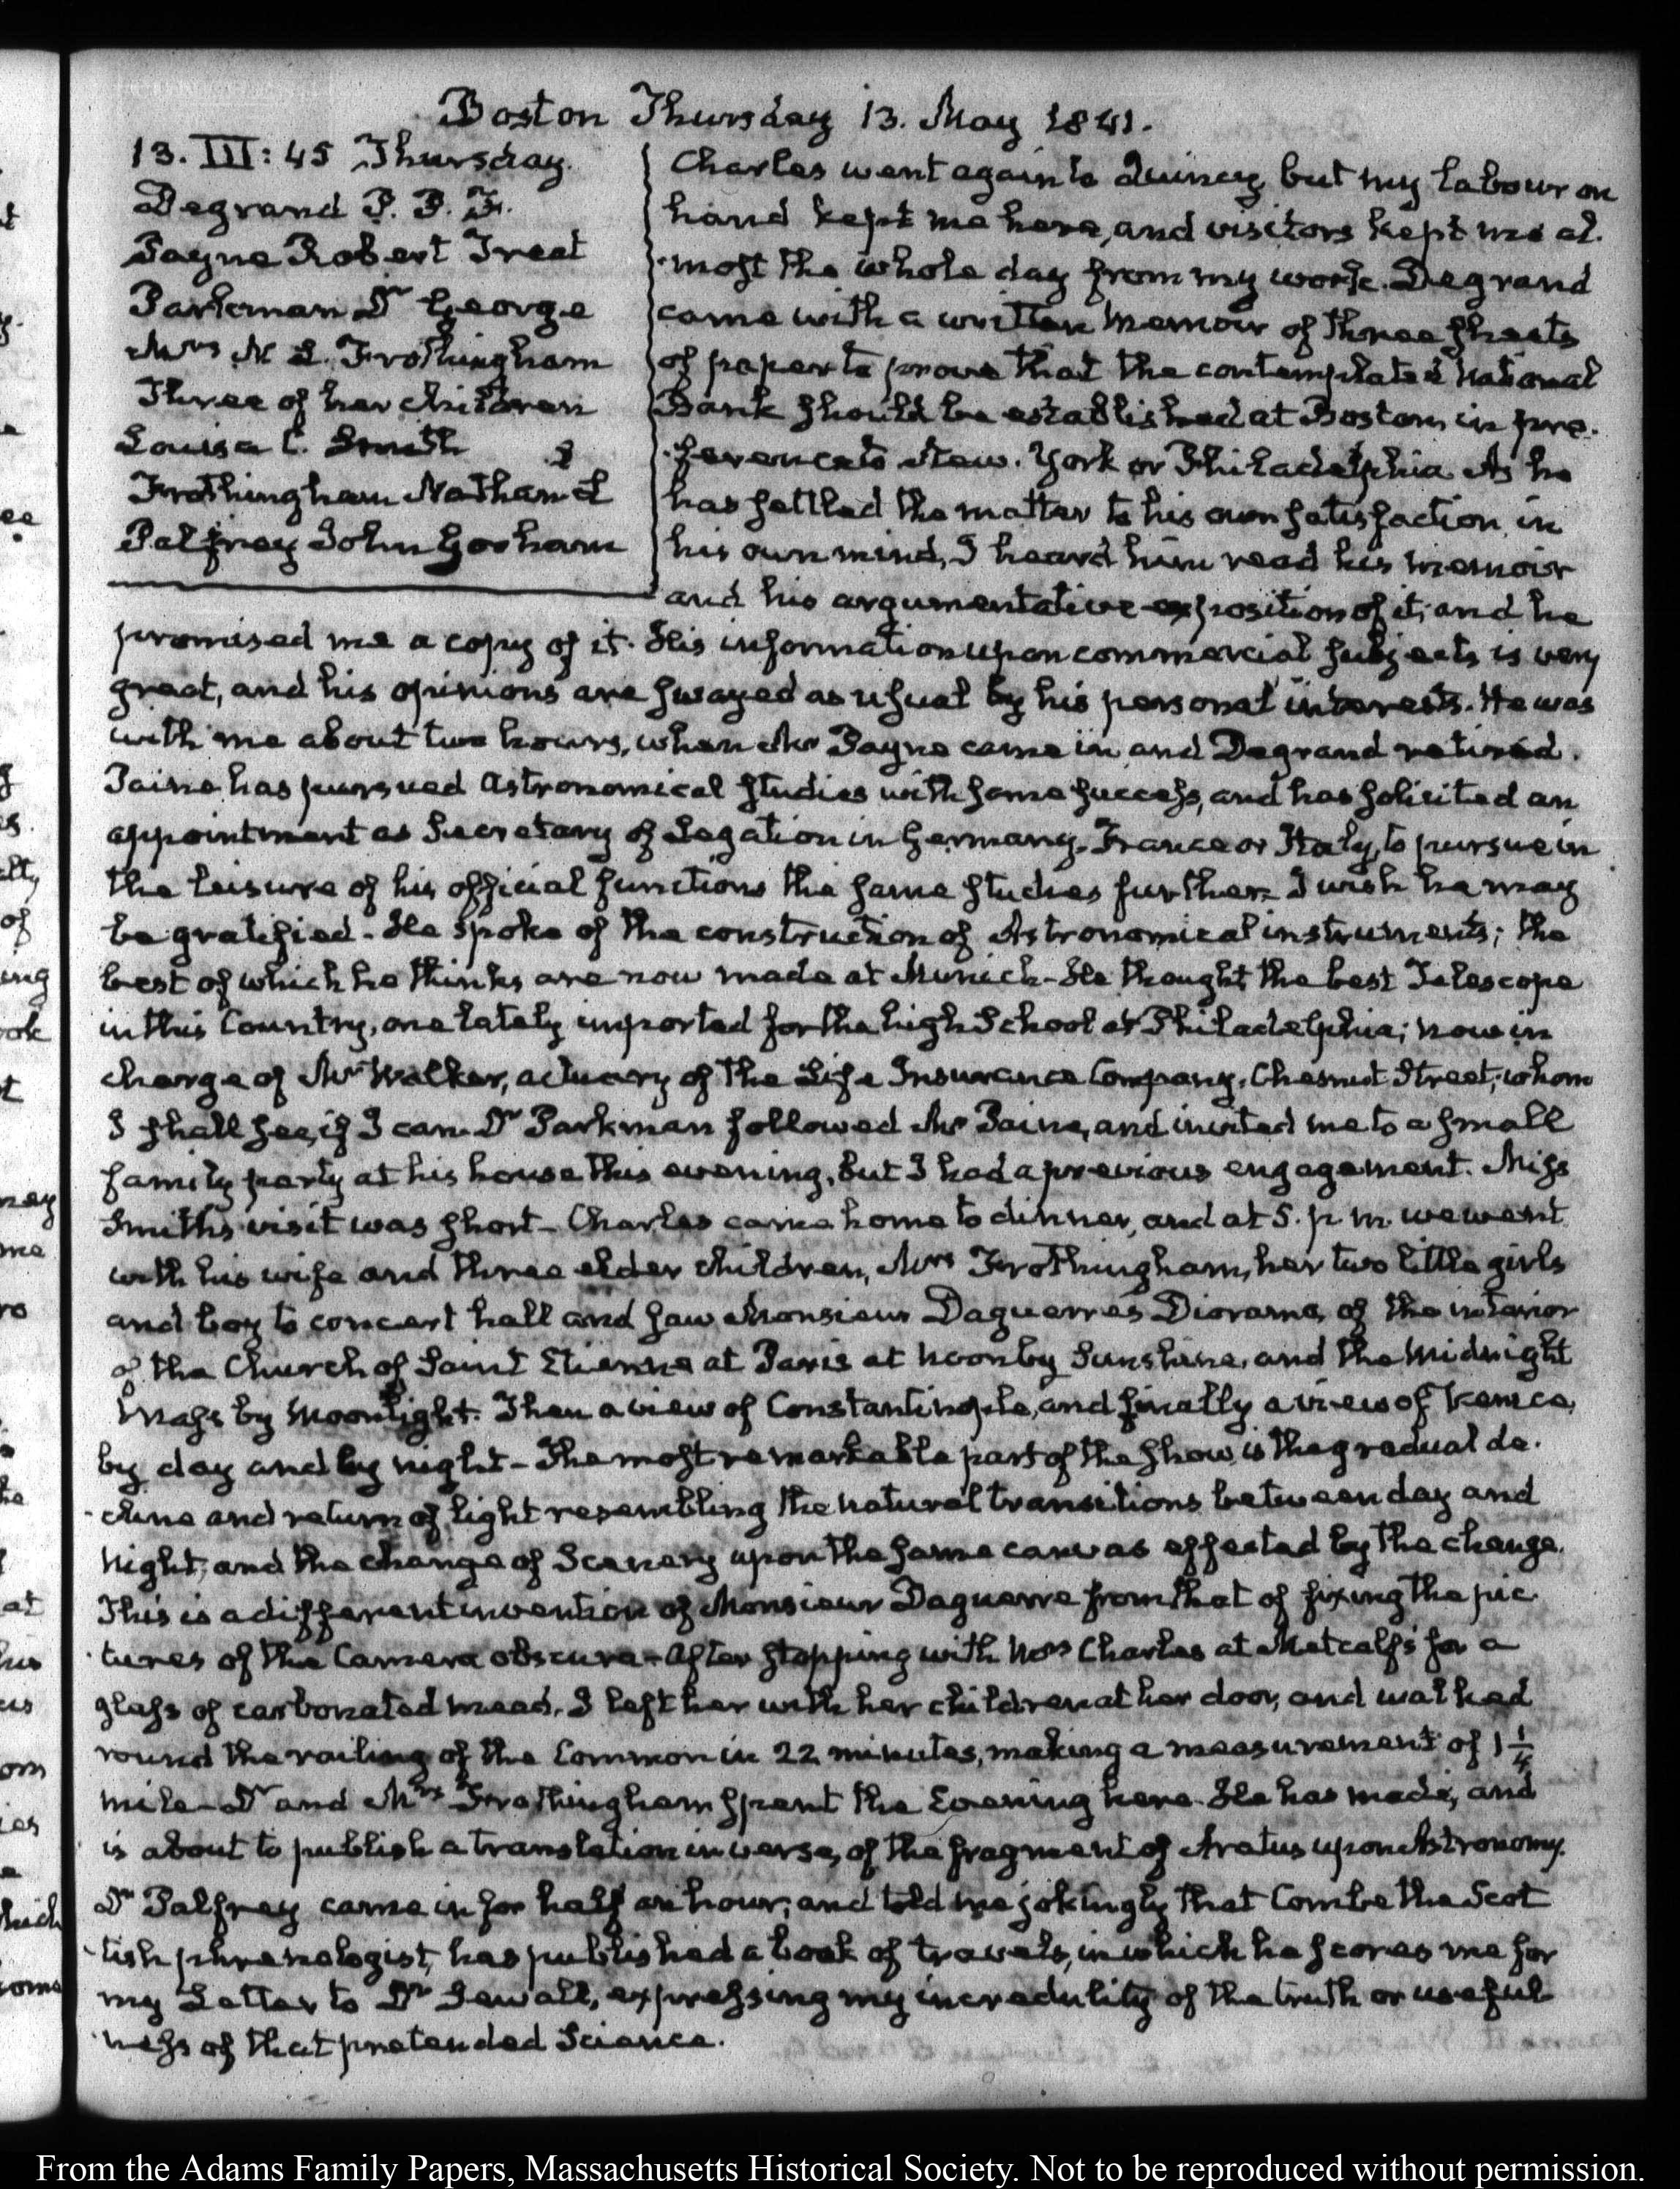 Boston Thursday 13. May 1841.
13. III: 45 Thursday.
Degrand P. P. F.
Payne Robert Treat
Parkman Dr George
Mrs N L. Frothingham
Three of her children
Louisa C. Smith
Frothingham Nathanl
Palfrey John Gorham
Charles went again to Quincy but my labour on
hand kept me here, and visitors kept me al-
-most the whole day from my work. Degrand
came with a written Memoir of three sheets
of paper to prove that the contemplated National
Bank should be established at Boston, in pre-
-ference to New-York or Philadelphia. As he
has settled the matter to his own satisfaction, in
his own mind, I heard him read his memoir
and his argumentative exposition of it, and he
promised me a copy of it. His information upon commercial subjects is very
great, and his opinions are swayed as usual by his personal interests. He was
with me about two hours, when Mr Payne came in, and Degrand retired.
Paine has pursued Astronomical studies with some success, and has solicited an
appointment as Secretary of Legation in Germany, France or Italy, to pursue in
the leisure of his official functions the same studies further. I wish he may
be gratified- He spoke of the construction of Astronomical instruments; the
best of which he thinks are now made at Munich- He thought the best Telescope
in this Country, one lately imported for the high School at Philadelphia; now in
charge of Mr Walker, actuary of the Life Insurance Company, Chesnut Street, whom
I shall see, if I can. Dr Parkman followed Mr Paine, and invited me to a small
family party at his house this evening, but I had a previous engagement. Miss
Smith's visit was short- Charles came home to dinner, and at 5. p.m. we went
with his wife and three elder children, Mrs Frothingham, her two little girls
and boy to concert hall and saw Monsieur Daguerre's Diorama, of the interior
of the Church of Saint Etienne at Paris at noon by Sunshine, and the Midnight
Mass by Moonlight. Then a view of Constantinople, and finally a view of Venice,
by day and by night- The most remarkable part of the show is the gradual de-
-cline and return of light resembling the natural transitions between day and
night, and the change of Scenery upon the same canvas effected by the change.
This is a different invention of Monsieur Daguerre from that of fixing the pic
-tures of the Camera obscura- After stopping with Mrs Charles at Metcalf's for a
glass of carbonated mead, I left her with her children at her door, and walked
round the railing of the Common in 22 minutes, making a measurement of 1 1/4
mile- Dr and Mrs Frothingham spent the Evening here. He has made, and
is about to publish a translation in verse, of the fragment of Aratus upon Astronomy.
Dr Palfrey came in for half an hour, and told me jokingly that Combe the Scot
-tish phrenologist, has published a book of travels, in which he scores me for
my Letter to Dr Sewall, expressing my incredulity of the truth or useful
-ness of that pretended Science.
From the Adams Family Papers, Massachusetts Historical Society. Not to be reproduced without permission.